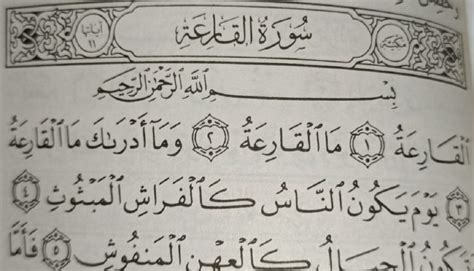 سُورَةُ القَارِعَةِ
مكيّة
آياتها ١١
بِسْمِ ٱللَّهِ ٱلرَّحْمَٰنِ ٱلرَّحِيمِ
ٱلْقَارِعَةُ ١ مَا ٱلْقَارِعَةُ ٢ وَمَآ أَدْرَىٰكَ مَا ٱلْقَارِعَةُ
٣ يَوْمَ يَكُونُ ٱلنَّاسُ كَٱلْفَرَاشِ ٱلْمَبْثُوثِ ٤
وَتَكُونُ ٱلْجِبَالُ كَٱلْعِهْنِ ٱلْمَنفُوشِ ٥ فَأَمَّا